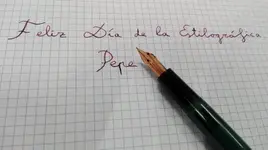 Feliz Día de la Estilográfica
Pepe